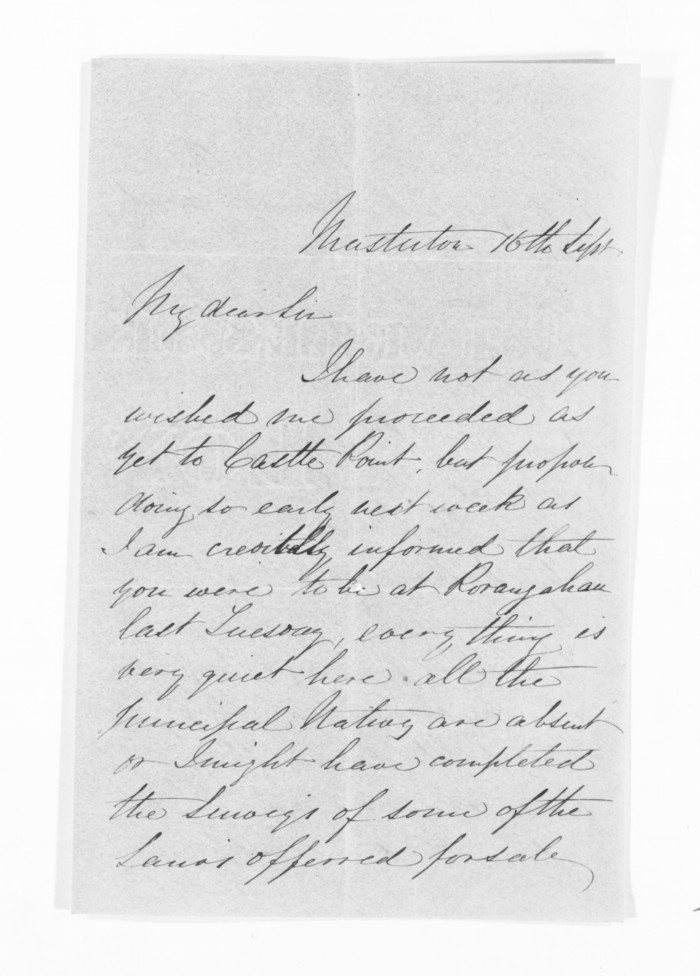 Masterton 16th Sept
My dear Sir
I have not as you
wished me proceeded as
yet to Castle Point, but propose
doing so early next week as
I am credibly informed that
you were to be at Rorangahau
last Tuesday, every thing is
very quiet here all the
principal Natives are absent
or I might have completed
the Surveys of some of the
Lands offerred for sale